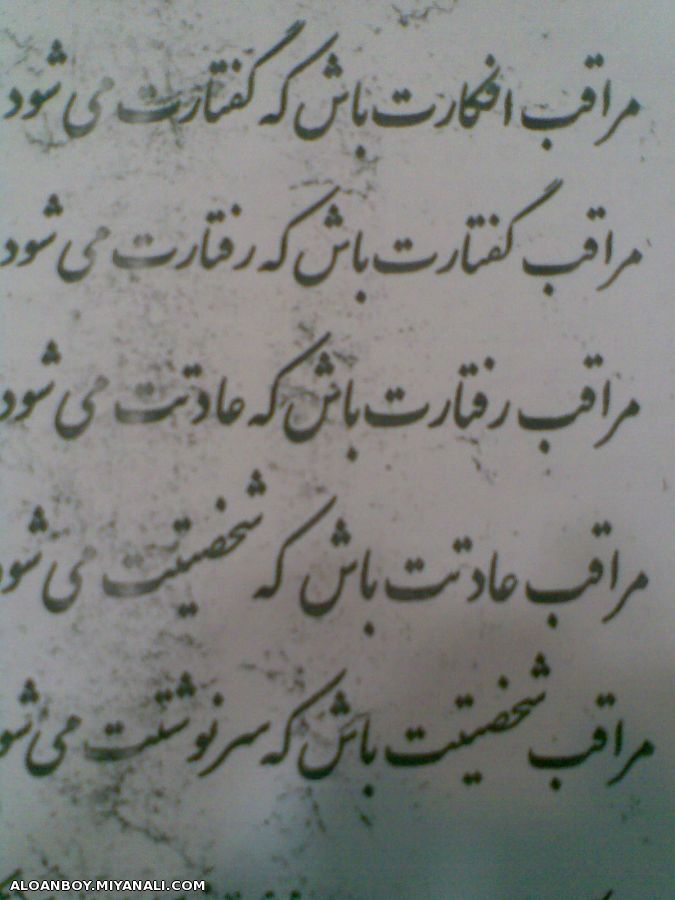 مراقب افکارت باش که گفتارت می شود
مراقب گفتارت باش که رفتارت می شود
مراقب رفتارت باش که عادتت می شود
مراقب عادتت باش که شخصیتت می شود
مراقب شخصیتت باش که سرنوشتت می شود
ALOANBOY.MIYANALI.COM